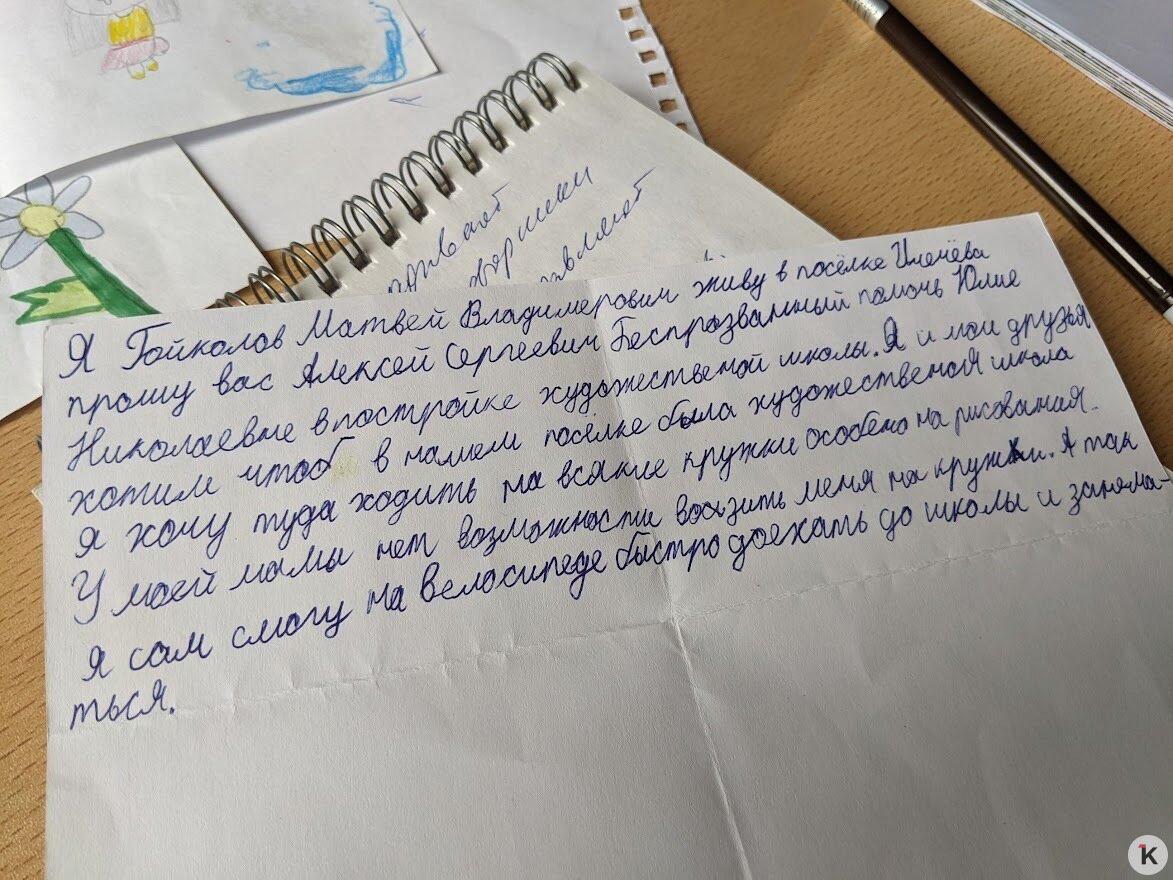 ривает
формики
вляют
Я Гойколов Матвей Владимерович живу в посёлке Илечёва
прошу вас Алексей Сергеевич Беспрозванный помочь Юлие
Николаевне в постройке художественой школы. Я и мои друзья
хотим чтоб в нашем посёлке была художественоя школа
я хочу туда ходить на всякие кружки особено на рисования.
У моей мамы нет возможности возить меня на кружки. А так
я сам смогу на велосипеде быстро доехать до школы и занема-
ться.
K